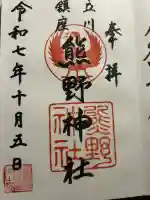 奉拝
立川
鎮座
熊野神社
熊野
神社
令和七年十月五日